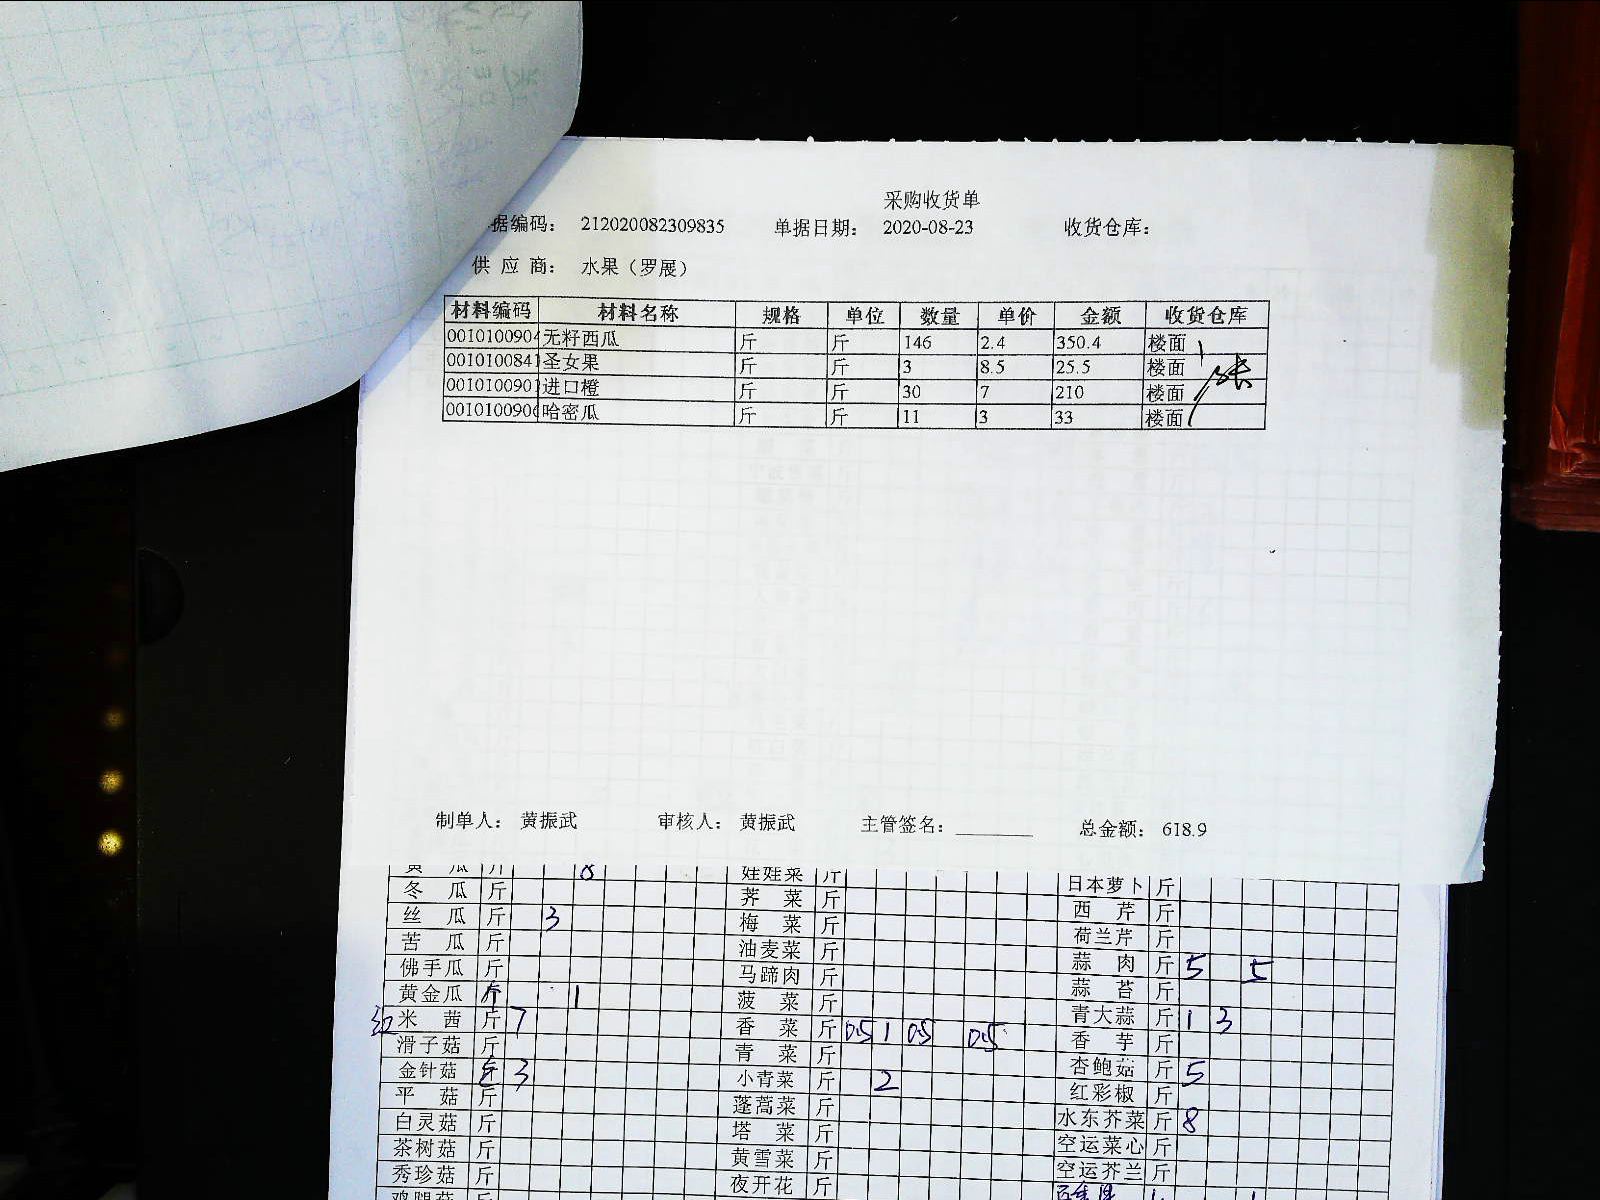 采购收货单
据编码： 212020082309835 单据日期： 2020-08-23 收货仓库：
供 应 商： 水果（罗展）
材料编码 材料名称 规格 单位 数量 单价 金额 收货仓库
001010090 无籽西瓜 斤 斤 146 2.4 350.4 楼面
001010084 圣女果 斤 斤 3 8.5 25.5 楼面
001010090 进口橙 斤 斤 30 7 210 楼面
001010090 哈密瓜 斤 斤 11 3 33 楼面
制单人： 黄振武 审核人： 黄振武 主管签名： 总金额： 618.9
黄 瓜 斤 8 娃娃菜 斤 日本萝卜 斤
冬 瓜 斤 荠 菜 斤 西 芹 斤
丝 瓜 斤 3 梅 菜 斤 荷兰芹 斤
苦 瓜 斤 油麦菜 斤 蒜 肉 斤 5 5
佛手瓜 斤 马蹄肉 斤 蒜 苔 斤
黄金瓜 斤 1 菠 菜 斤 青大蒜 斤 1 3
红米 茜 斤 7 香 菜 斤 0.5 1 0.5 0.5 香 芋 斤
滑子菇 斤 青 菜 斤 杏鲍菇 斤 5
金针菇 斤 3 小青菜 斤 2 红彩椒 斤
平 菇 斤 蓬蒿菜 斤 水东芥菜 斤 8
白灵菇 斤 塔 菜 斤 空运菜心 斤
茶树菇 斤 黄雪菜 斤 空运芥兰 斤
秀珍菇 斤 夜开花 斤
鸡腿菇 斤